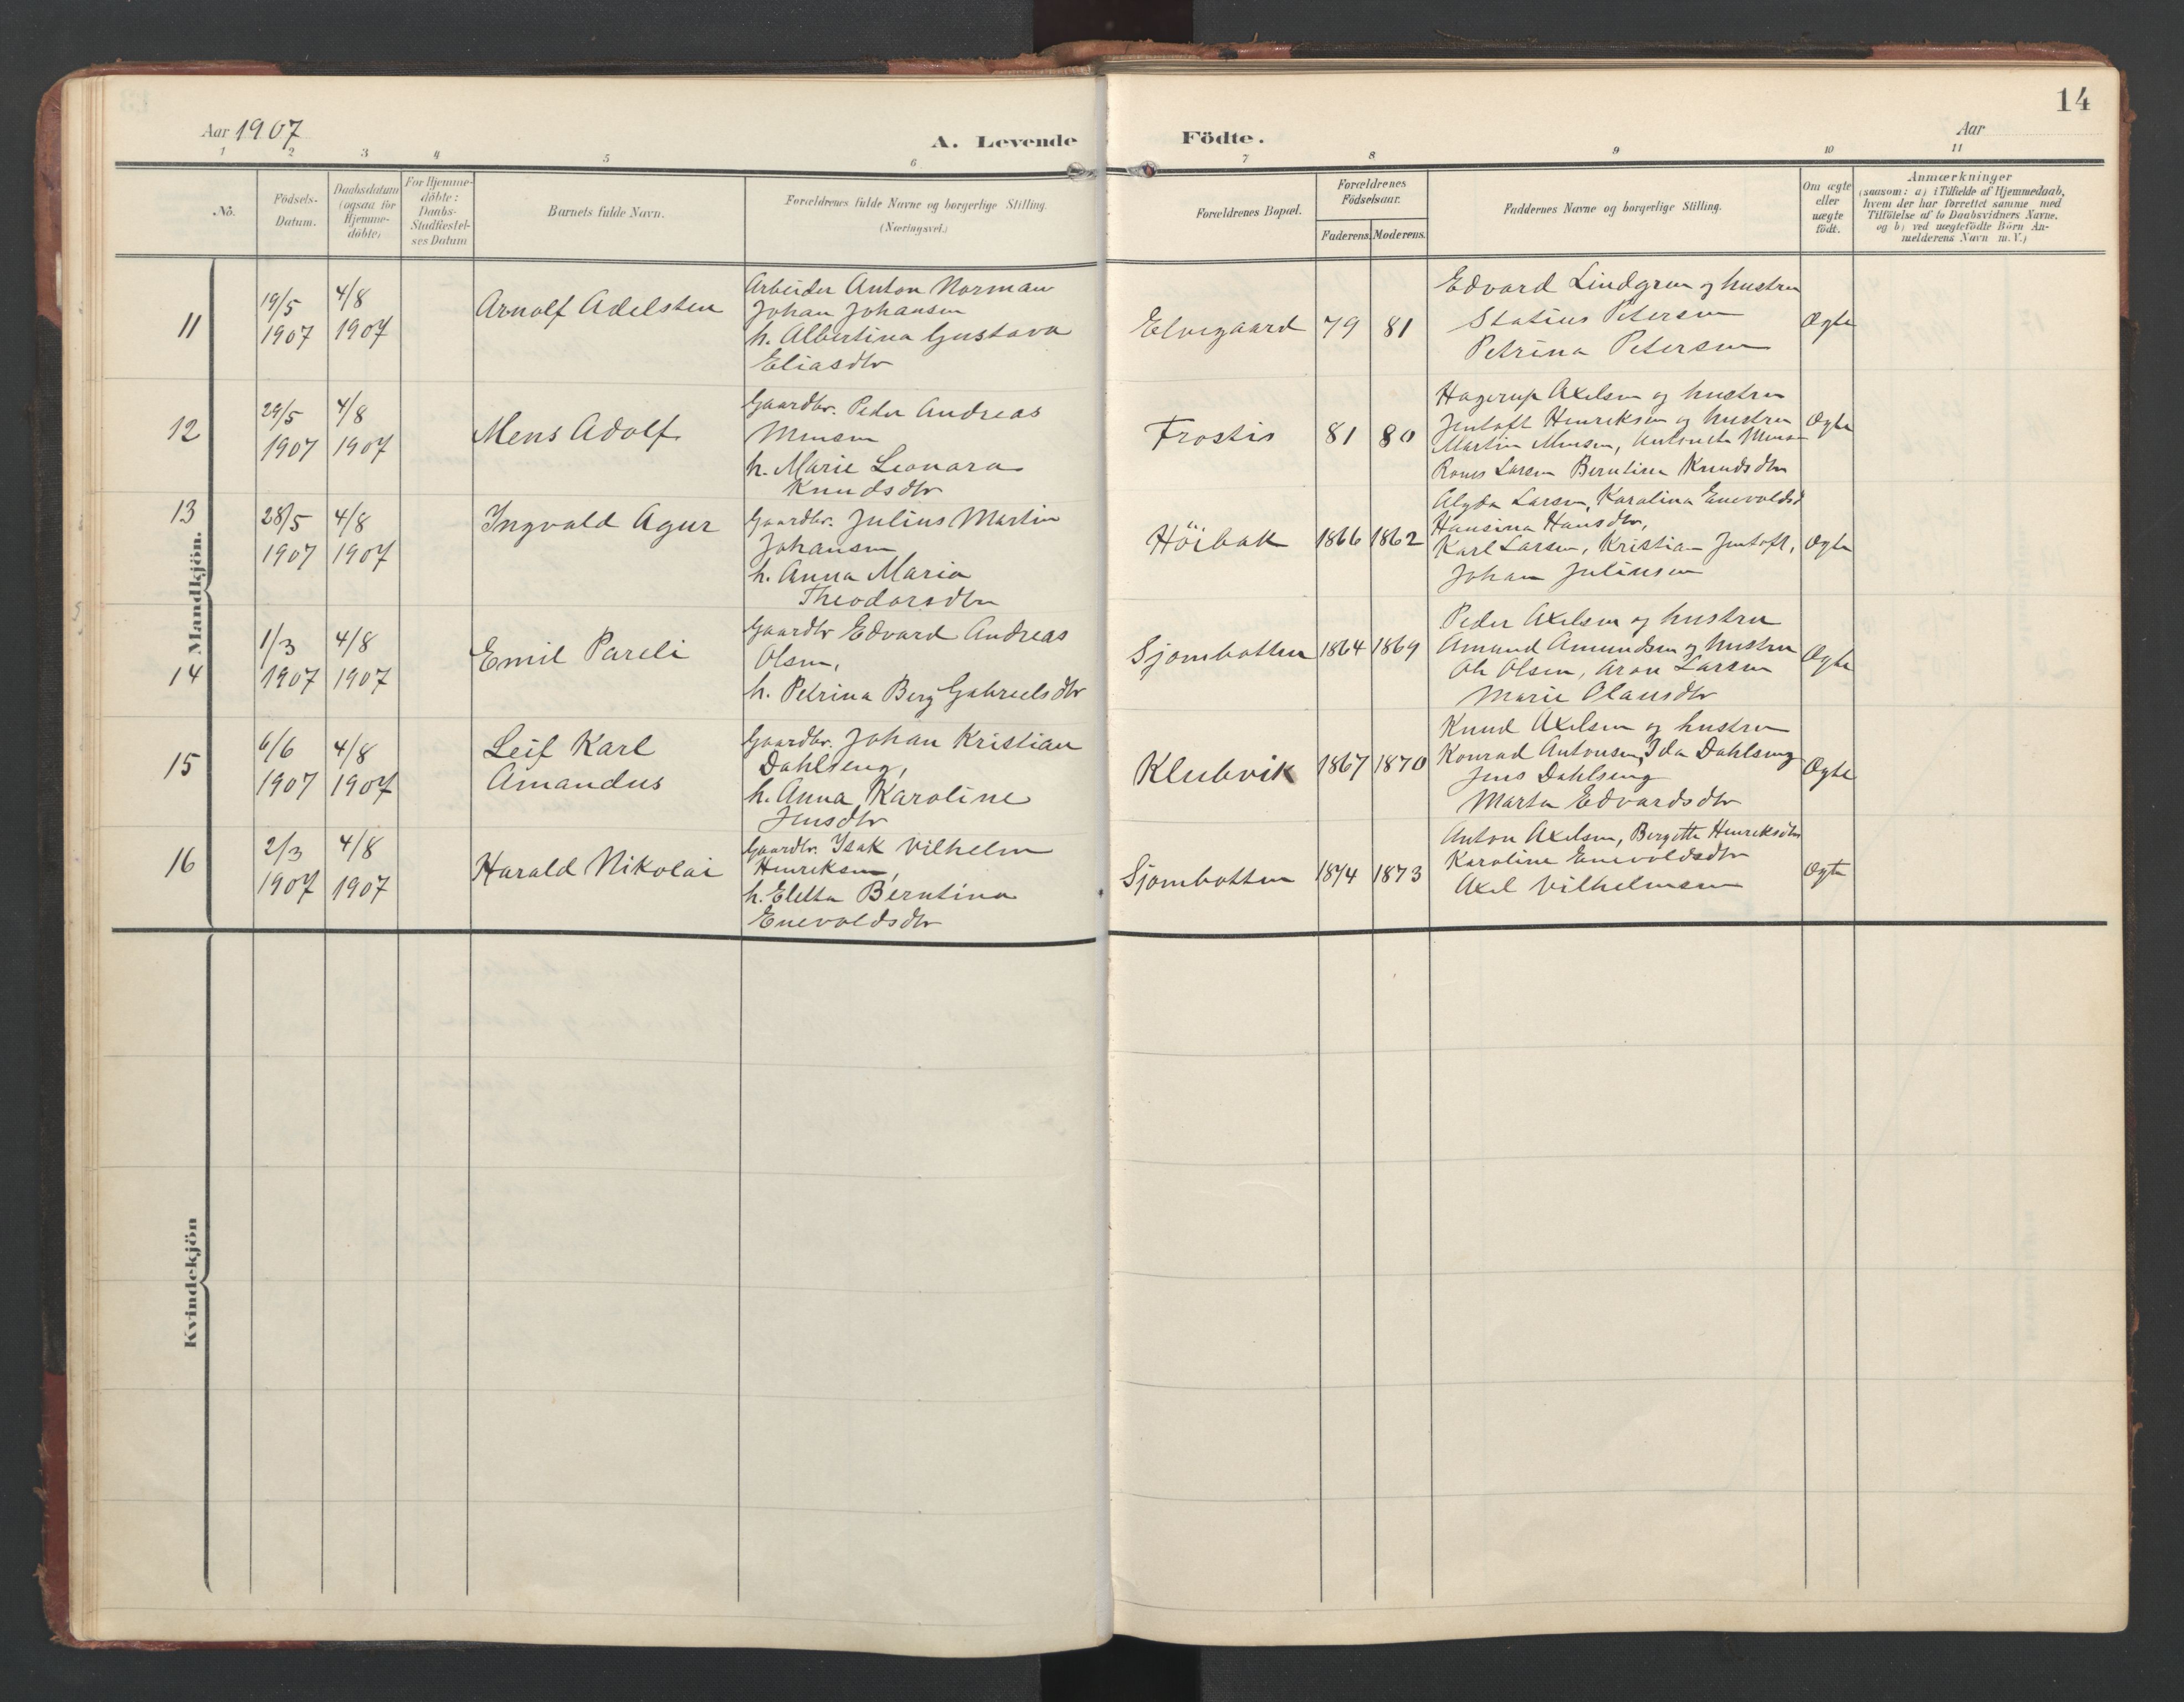 14
Aar 1907
A. Levende Födte.
Aar
1 2 3 4 5 6 7 8 9 10 11
No.
Födsels-
Datum.
Daabsdatum
(ogsaa for
Hjemme-
döbte)
For Hjemme-
döbte:
Daabs-
Stadfæstel-
ses Datum
Barnets fulde Navn.
Forældrenes fulde Navne og borgerlige Stilling.
(Næringsvei.)
Forældrenes Bopæl.
Forældrenes
Födselsaar.
Faderens. Moderens.
Faddernes Navne og borgerlige Stilling.
Om ægte
eller
uægte
födt.
Anmærkninger
(saasom: a) i Tilfælde af Hjemmedaab,
hvem der har forrettet samme med
Tilföielse af to Daabsvidners Navne.
og b) ved uægtefödte Börn An-
melderens Navn m.V.)
Mandkjön.
11
19/5
1907
4/8
1907
Arnolf Adelsten
Arbeider Anton Norman
Johan Johansen
h. Albertina Gustava
Eliasdtr
Elvegaard
79
81
Edvard Lindgren og hustru
Statius Petersen
Petrina Petersen
Ægte
12
29/5
1907
4/8
1907
Mens Adolf
Gaardbr. Peder Andreas
Mensen
h. Marie Leonora
Knudsdtr
Frostis
81
80
Hagerup Axelsen og hustru
Jentoft Henriksen og hustru
Martin Mensen, Antonette Mensen
Larsen Berntine Knudsdtr
Ægte
13
28/5
1907
4/8
1907
Ingvald Agur
Gaardbr. Julius Martin
Johansen
h. Anna Maria
Theodorsdtr
Höibak
1866
1862
Alyda Larsen, Karolina Enevoldsd
Hansina Hansdtr,
Karl Larsen, Kristian Jentoft,
Johan Juliussen
Ægte
14
1/3
1907
4/8
1907
Emil Pareli
Gaardbr Edvard Andreas
Olsen,
h. Petrina Berg Gabrielsdtr
Sjombotten
1864
1869
Peder Axelsen og hustru
Amund Amundsen og hustru
Ole Olsen, Aron Larsen
Marie Olausdtr
Ægte
15
6/6
1907
4/8
1907
Leif Karl
Amandus
Gaardbr. Johan Kristian
Dahlseng,
h. Anna Karoline
Jensdtr
Klubvik
1867
1870
Knud Axelsen og hustru
Konrad Antonsen, Ida Dahlseng
Jens Dahlseng
Marta Edvardsdtr
Ægte
16
2/3
1907
4/8
1907
Harald Nikolai
Gaardbr. Isak Vilhelm
Henriksen,
h. Eletta Berntina
Enevoldsdtr
Sjombotten
1874
1873
Anton Axelsen, Bergitte Henriksdtr
Karoline Enevoldsdtr
Axel Vilhelmsen
Ægte
Kvindekjön